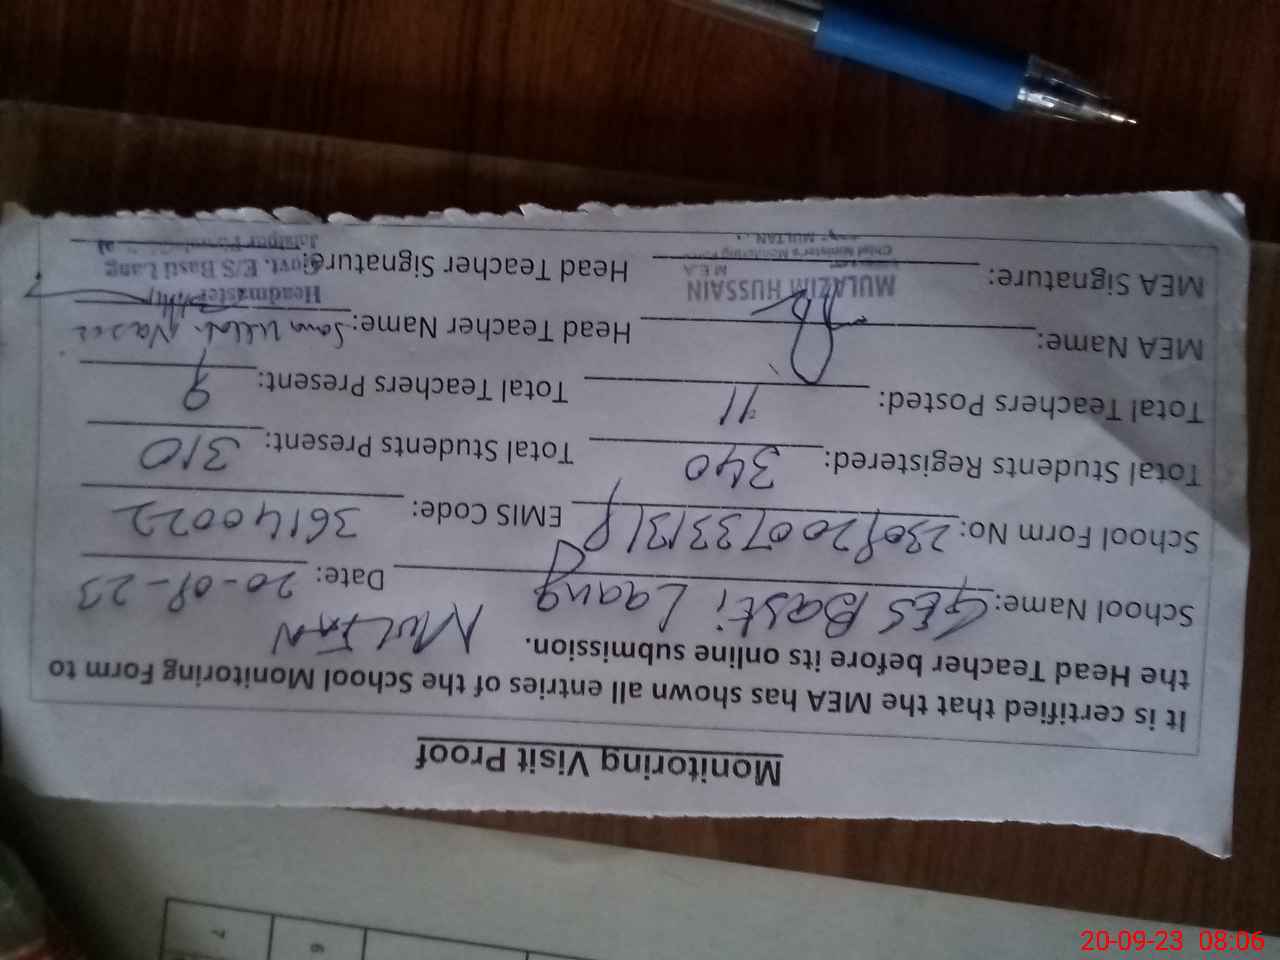 Monitoring Visit Proof
It is certified that the MEA has shown all entries of the School Monitoring Form to
the Head Teacher before its online submission.
MULTAN
School Name: GES Basti Laang Date: 20-09-23
School Form No: EMIS Code: 36140022
Total Students Registered: 340 Total Students Present: 310
Total Teachers Posted: 11 Total Teachers Present: 9
MEA Name: Head Teacher Name: Sana Ullah Nasir
MULAZIM HUSSAIN
M E A
Chief Minister's Monitoring Force
MULTAN.
Headmaster
Govt. E/S Basti Lang
Jalalpur
MEA Signature: Head Teacher Signature:
6
7
20-09-23 08:06